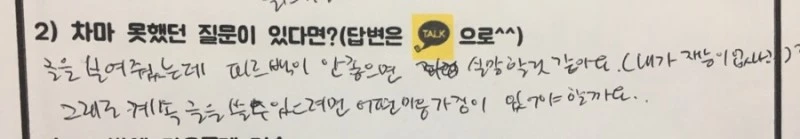 2) 차마 못했던 질문이 있다면?(답변은 TALK 으로^^)
글을 보여줬는데 피드백이 안좋으면 실망할것 같아요.(내가 재능이 없나..)
그래도 계속 글을 쓸수있으려면 어떤마음가짐이 있어야할까요..